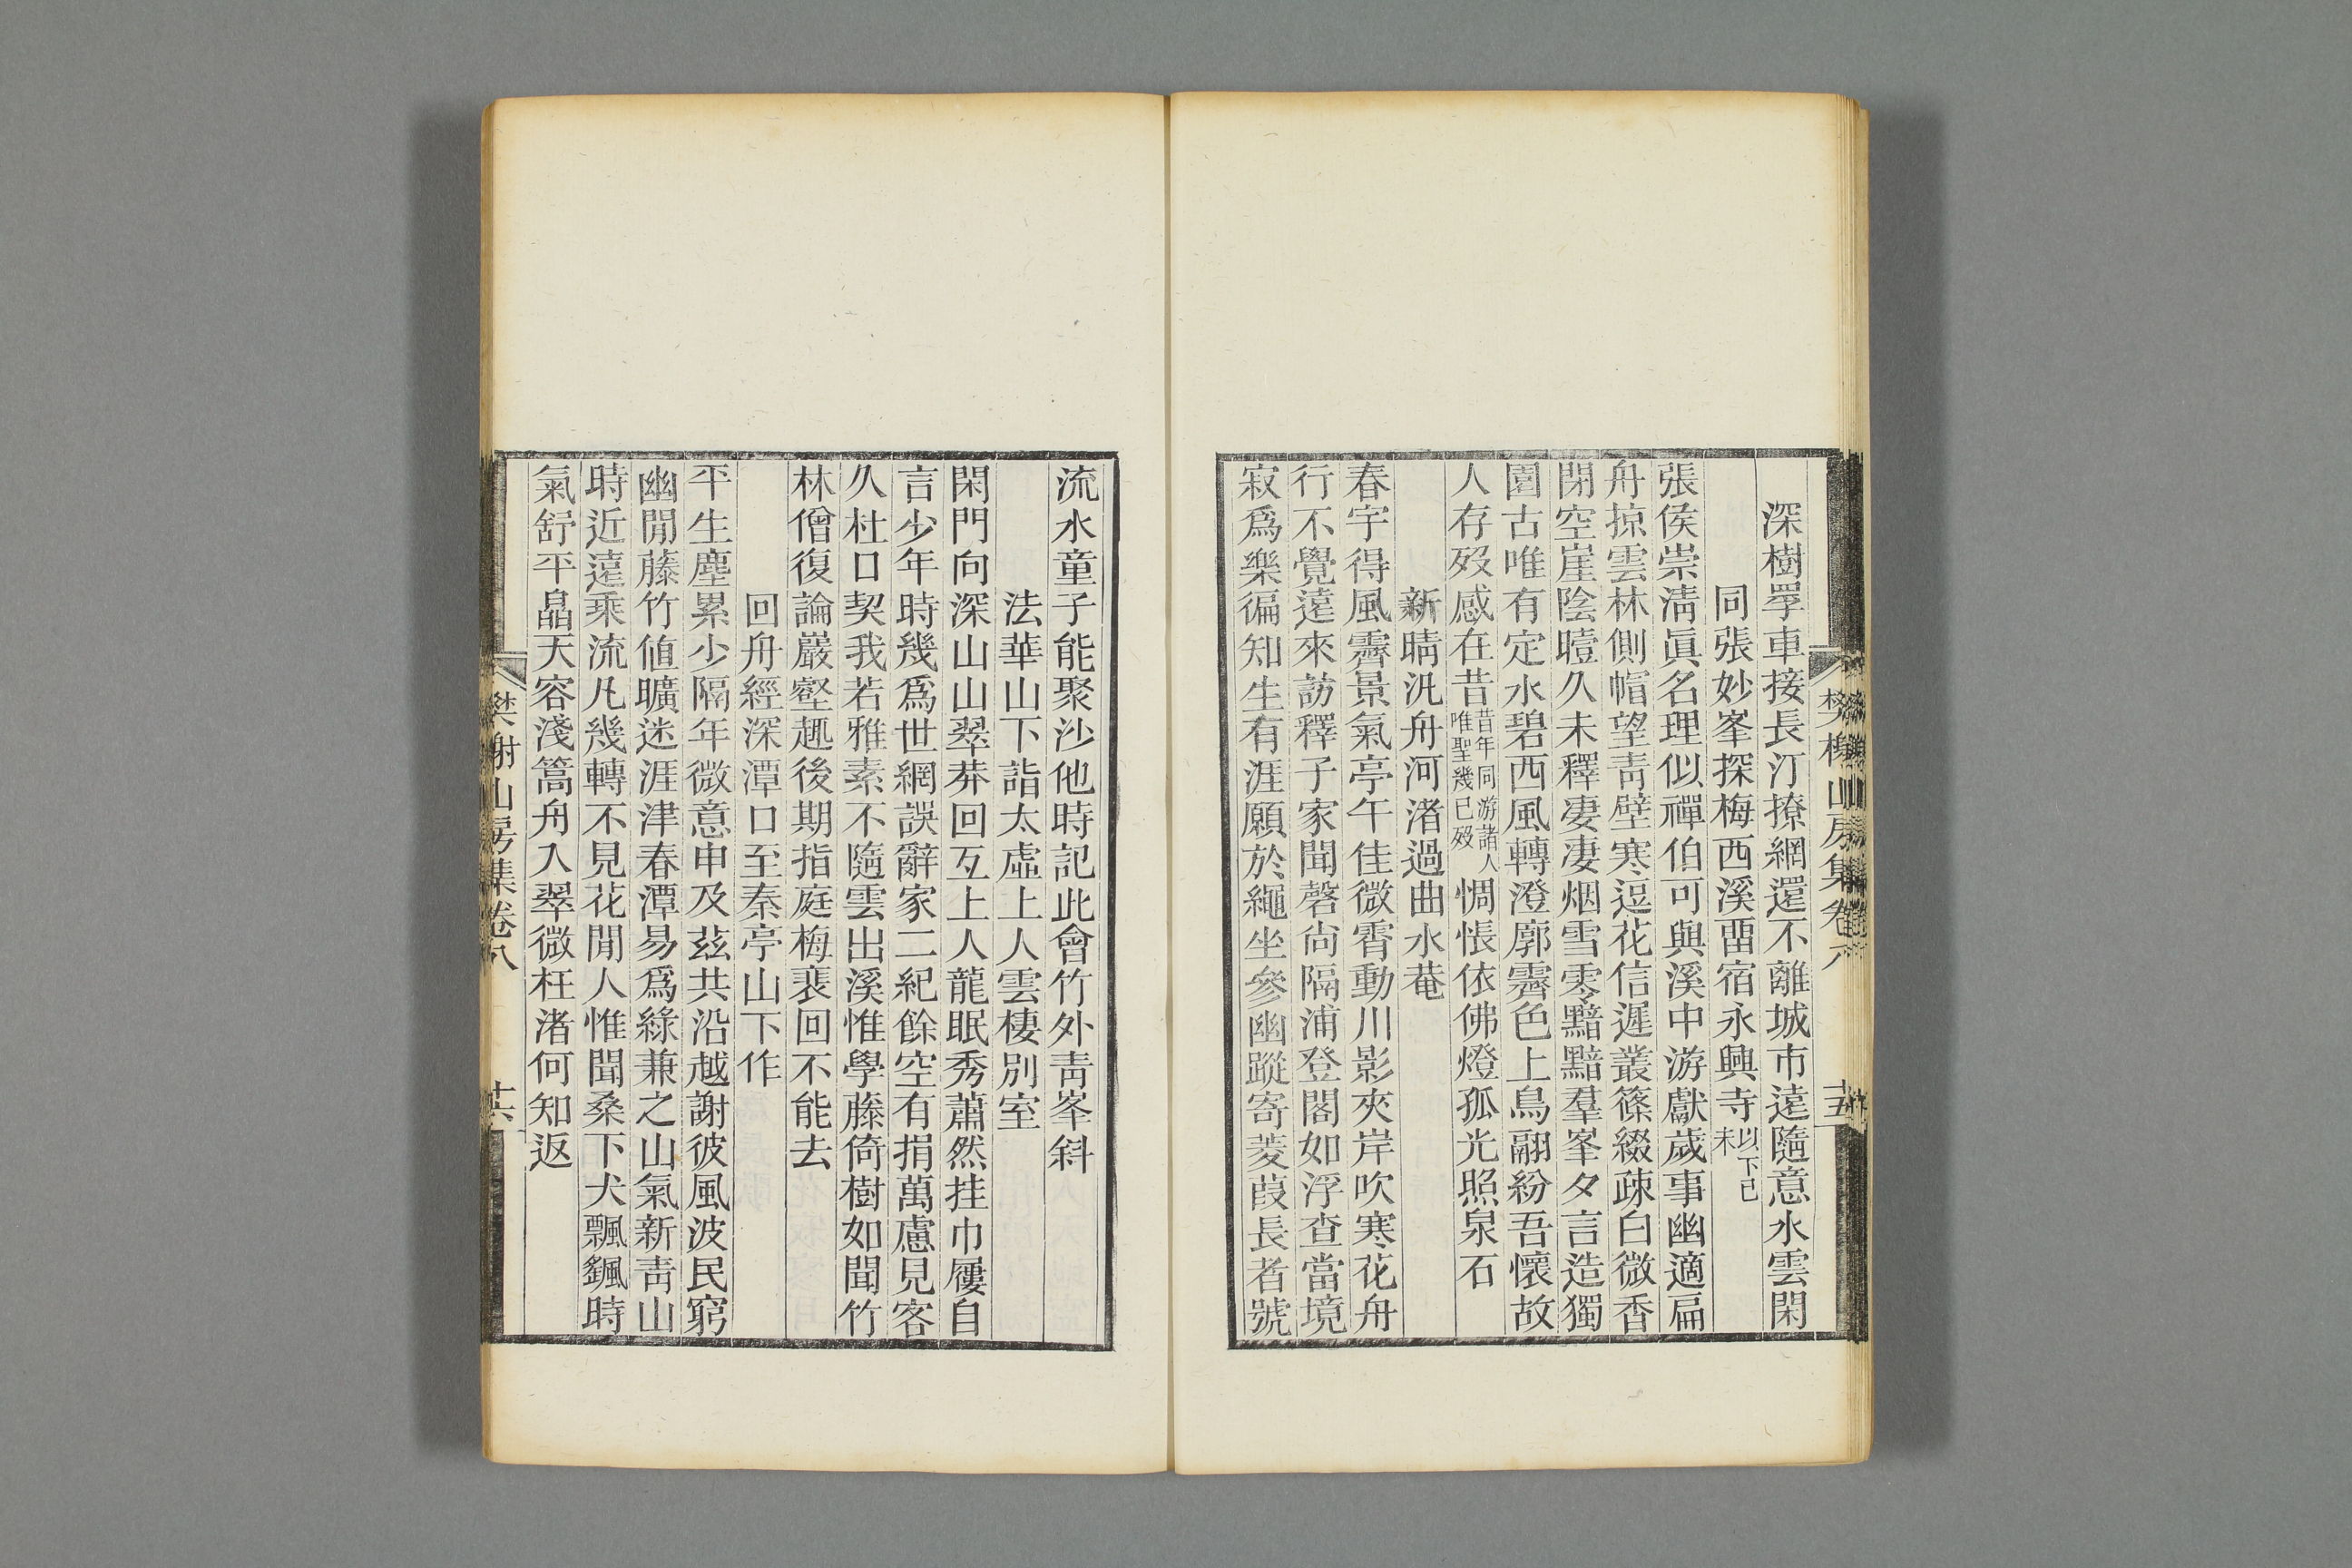 樊榭山房集卷八
十五
深樹罩車接長汀撩網還不離城市遠隨意水雲閑
同張妙峯探梅西溪畱宿永興寺以下己未
張侯崇淸眞名理似禪伯可與溪中游獻歲事幽適扁
舟掠雲林側帽望靑壁寒逗花信遲叢篠綴疎白微香
閉空崖陰曀久未釋凄凄烟雪零黯黯羣峯夕言造獨
園古唯有定水碧西風轉澄廓霽色上鳥翮紛吾懷故
人存歿感在昔昔年同游諸人唯聖幾已歿惆悵依佛燈孤光照泉石
新晴汎舟河渚過曲水菴
春宇得風霽景氣亭午佳微霄動川影夾岸吹寒花舟
行不覺遠來訪釋子家聞磬尙隔浦登閣如浮査當境
寂爲樂徧知生有涯願於繩坐參幽蹤寄菱葭長者號
流水童子能聚沙他時記此會竹外靑峯斜
法華山下詣太虛上人雲棲別室
閑門向深山山翠莽回互上人龍眠秀蕭然挂巾屨自
言少年時幾爲世網誤辭家二紀餘空有捐萬慮見客
久杜口契我若雅素不隨雲出溪惟學藤倚樹如聞竹
林僧復論巖壑趣後期指庭梅裴回不能去
回舟經深潭口至秦亭山下作
平生塵累少隔年微意申及茲共沿越謝彼風波民窮
幽閒藤竹値曠迷涯津春潭易爲綠兼之山氣新靑山
時近遠乘流凡幾轉不見花閒人惟聞桑下犬飄颻時
氣舒平皛天容淺篙舟入翠微枉渚何知返
樊榭山房集卷八
十六